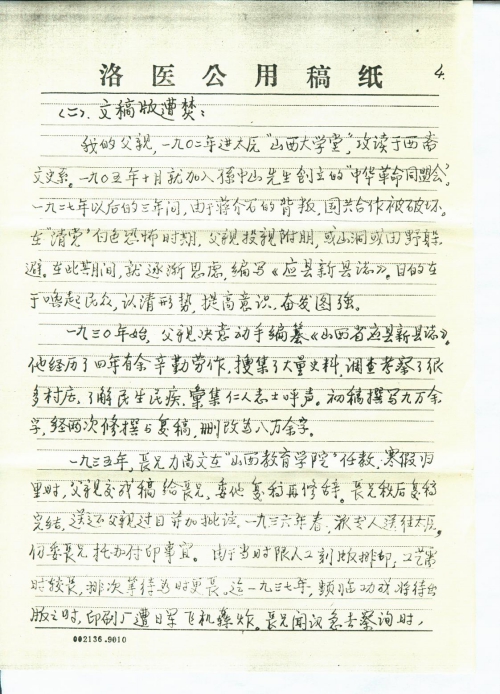 洛医公用稿纸
4.
(二).文稿版遭焚:
我的父亲,一九〇二年进太原"山西大学堂",攻读于西斋
文史系。一九〇五年十月就加入孙中山先生创立的"中华革命同盟会"。
一九二七年以后的三年间,由于蒋介石的背叛,国共合作被破坏。
在"清党"白色恐怖时期,父亲投亲附朋,或山洞或田野躲
避,在此期间,就逐渐思虑,编写《应县新县志》。目的在
于唤起民众,认清形势,提高意识,奋发图强。
一九三〇年始,父亲决意动手编纂《山西省应县新县志》。
他经历了四年有余辛勤劳作,搜集了大量史料,调查考察了很
多村庄,了解民生民疾,汇集仁人志士呼声。初稿撰写九万余
字,经两次修撰与复稿,删改为八万余字。
一九三五年,长兄力尚文在"山西教育学院"任教,寒假归
里时,父亲交我稿给长兄,委他复稿再修辞。长兄秋后复稿
完结,送还父亲过目并加批注,一九三六年春,派专人送往太原,
仍委长兄托办付印事宜。由于当时限人工刻版排印,工艺需
时较长,排次等待为时更长。迨一九三七年,频临功成将待出
版之时,印刷厂遭日军飞机轰炸。长兄闻讯急去察询时,
002136.9010